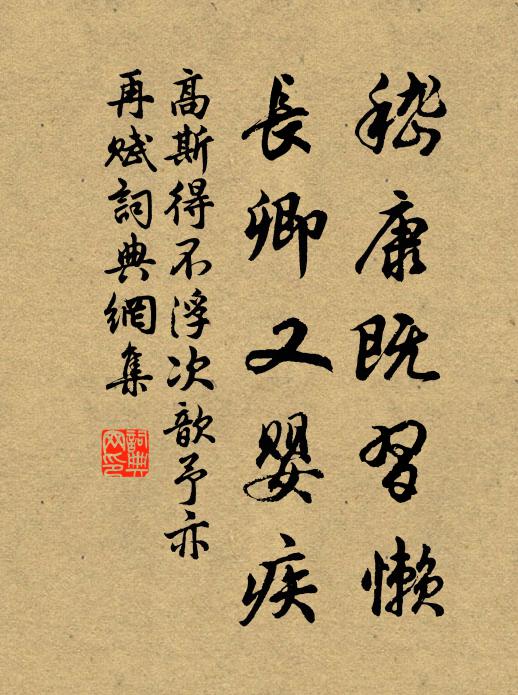 嵇康既習懶
長卿又嬰疾
高斯得不浮次歆予亦
再賦詞典網集
詞典網印